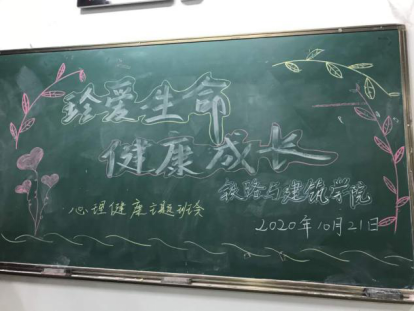 珍爱生命
健康成长
铁路与建筑学院
心理健康主题班会
2020年10月21日